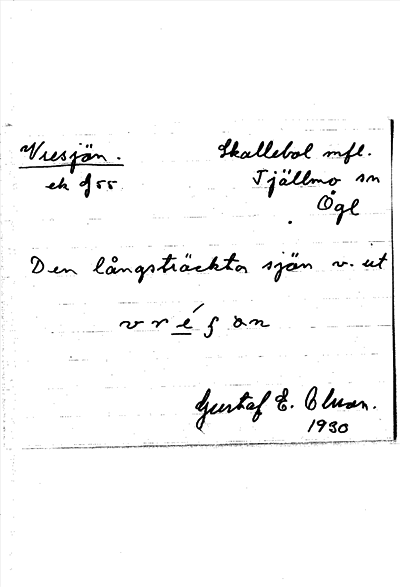 Vresjön. Skallebol mfl.
ek J55 Tjällmo sn
Ögl
Den långsträckta sjön v. ut
v r é ʂ ɷ n
Gustaf E. Olsson.
1930